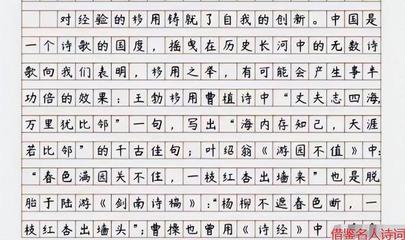 对经验的移用铸就了自我的创新。中国是
一个诗歌的国度，摇曳在历史长河中的无数诗
歌向我们表明，移用之举，有可能会产生事半
功倍的效果：王勃移用曹植诗中“丈夫志四海，
万里犹比邻”一句，写出“海内存知己，天涯
若比邻”的千古佳句；叶绍翁《游园不值》中：
“春色满园关不住，一枝红杏出墙来”也是脱
胎于陆游《剑南诗稿》：“杨柳不遮春色断，一
枝红杏出墙头”；曹操也曾用《诗经》中“
借鉴名人诗词